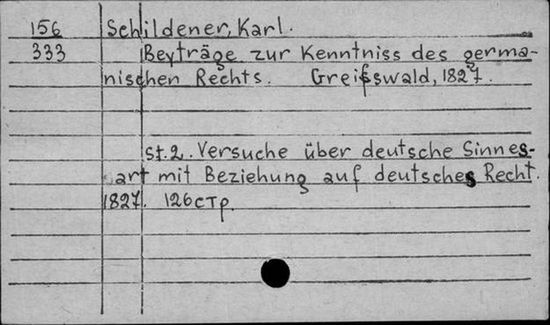 156 Schildener, Karl.
333 Beyträge zur Kenntniss des germa-
nischen Rechts. Greifswald, 1827.
St. 2. Versuche über deutsche Sinnes-
art mit Beziehung auf deutsches Recht.
1827. 126 стр.